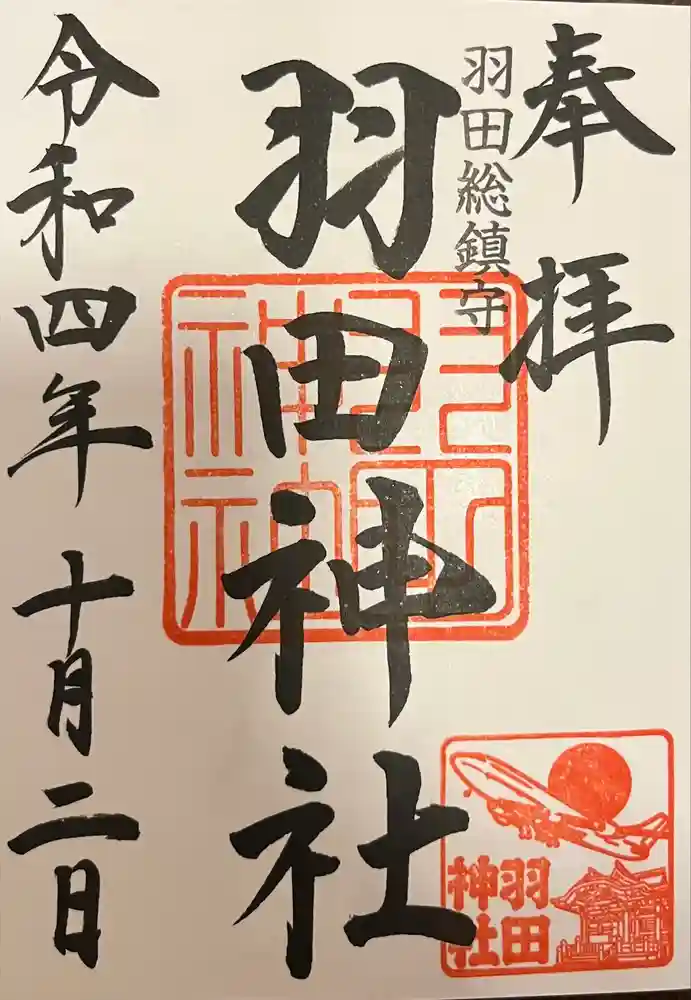 奉拝
羽田総鎮守
羽田神社
令和四年 十月二日
羽田
神社